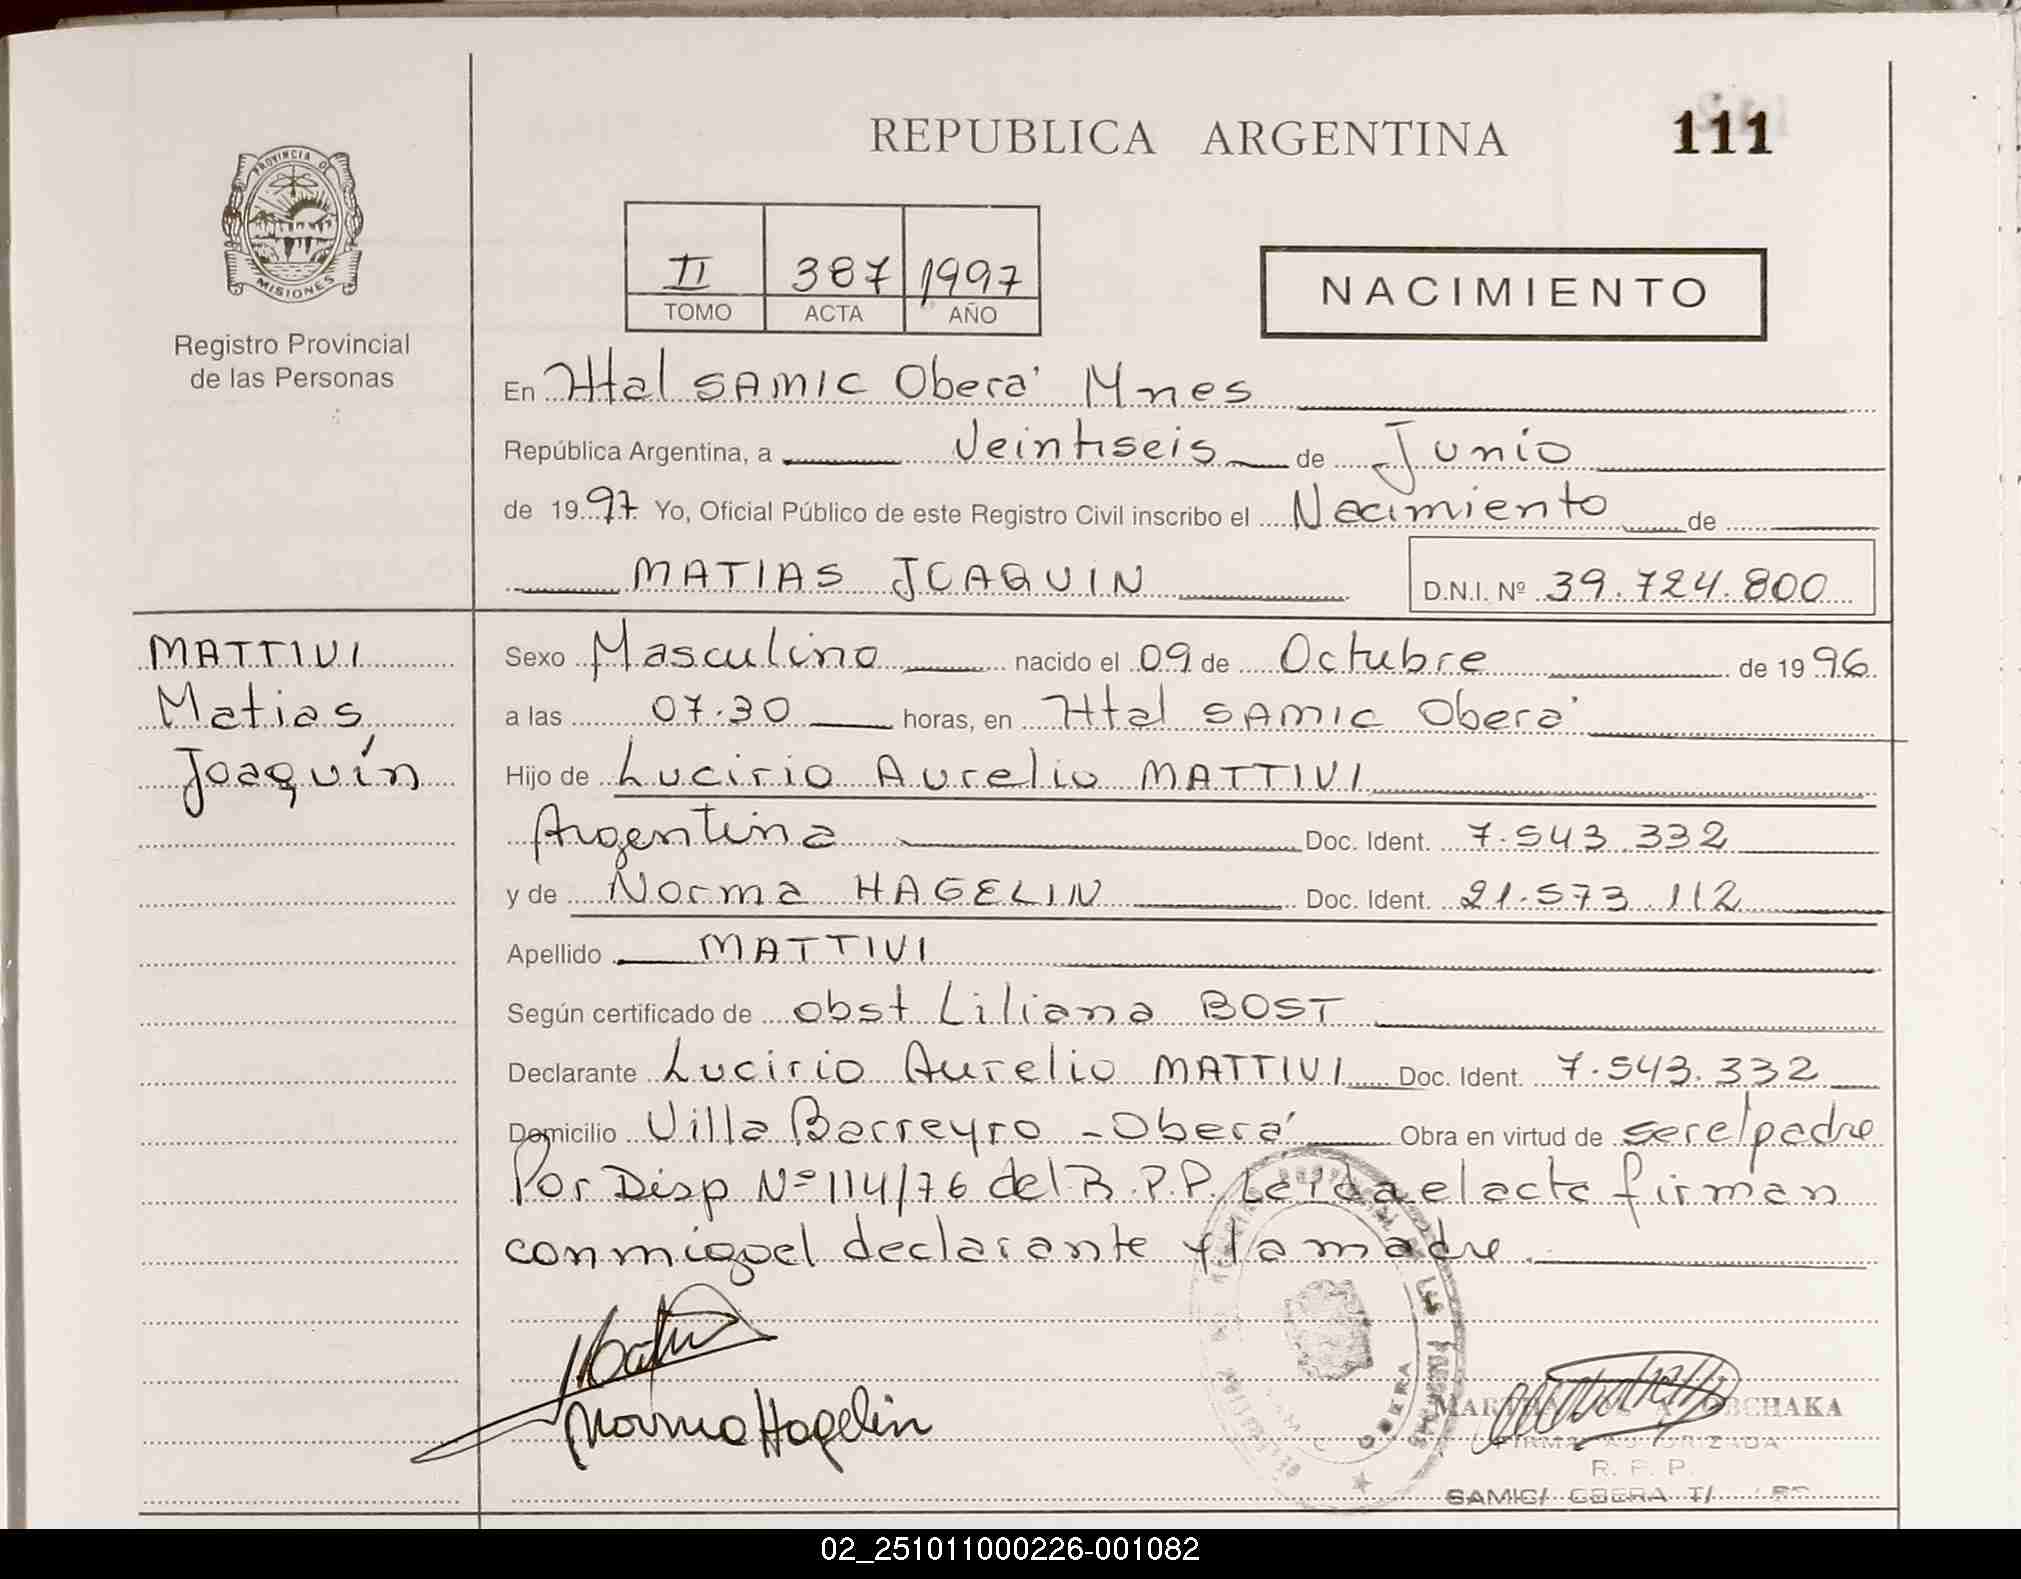 REPUBLICA ARGENTINA
111
PROVINCIA DE
MISIONES
Registro Provincial
de las Personas
II 387 1997
TOMO ACTA AÑO
NACIMIENTO
En Htal SAMIC Oberá Mnes
República Argentina, a Veintiseis de Junio
de 1997 Yo, Oficial Público de este Registro Civil inscribo el Nacimiento de
MATIAS JOAQUIN D.N.I. Nº 39.724.800
MATTIVI
Matias
Joaquín
Sexo Masculino nacido el 09 de Octubre de 1996
a las 07.30 horas, en Htal SAMIC Oberá
Hijo de Lucirio Aurelio MATTIVI
Argentina Doc. Ident. 7.543.332
y de Norma HAGELIN Doc. Ident. 21.573.112
Apellido MATTIVI
Según certificado de obst Liliana BOST
Declarante Lucirio Aurelio MATTIVI Doc. Ident. 7.543.332
Domicilio Villa Barreyro - Oberá Obra en virtud de ser el padre
Por Disp Nº 114/76 del R.P.P. Leida el acta firman
conmigo el declarante y la madre.
Norma Hagelin
OBERA
FIRMA AUTORIZADA
R. P. P.
SAMIC/ OBERA
02_251011000226-001082